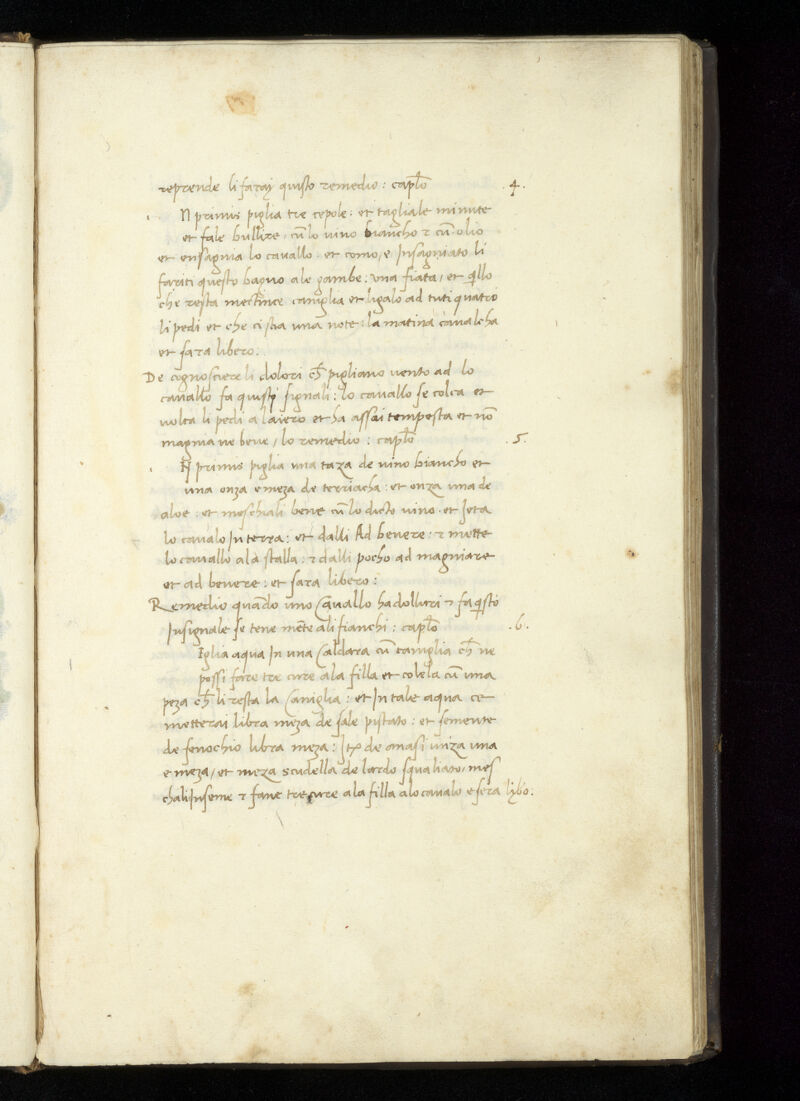 reprende li faray quisto remedio : caplo .4.
N primis piglia tre cepole : et tagliale minute
et fale bullire . cū lo uino biancho & cū olio
et ensagnia lo cauallo . et como, e Insagniato li
fariti questo bagno ale gambe . una fiata, et qllo
che resta mectince caniglia et ligalo ad tuti quatro
li pedi et che ci stia una note . la matina caualcha
et sara libero .
De cognosciere li dolori ch pigliano uento ad lo
cauallo fa quisti signali : lo cauallo se colca et
uolta li pedi a laiero et ha assai tempesta et nō
magnia ne beue / lo remedio : caplo .5.
N primis piglia una taza de uino biancho et
una onza e meza de terriacha : et onza una de
aloe : et meschiali bene cū lo dicto uino . et Jeta
lo cauallo In terra : et dalli Ad beuere : & mette
lo cauallo a la stalla : & dalli pocho ad magniare
et ad beuere : et sara libero :
Remedio quādo uno Cauallo ha dolluri & fa qsto
Insignale se tene mēte ali fianchi : caplo .6.
Iglia aqua In una Caldara cū caniglia ch ne
possi fare tre cure ala filla et colela cū una
peza ch li resta la Caniglia : et In tale aqua ce
metterai libra meza de sale pistato : et semente
de fenochio libra meza : de anasi unza una
e meza / et meza scudella de lardo squaliato / mes
chali Inseme & fane tre cure a la filla alo cauallo e sera libō .